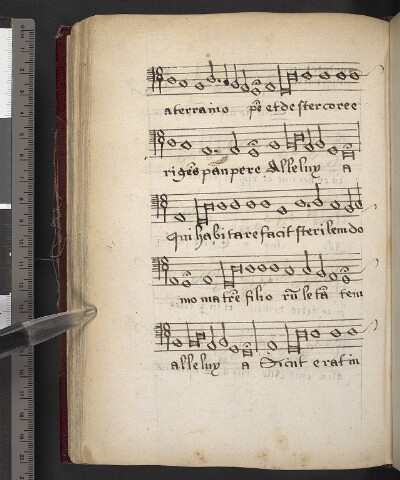 a terra ino pē et de stercore e
rigēs panpere Alleluy a
Qui habitare facit sterilem do
mo matrē filio rū letā tem
alleluy a Sicut erat in